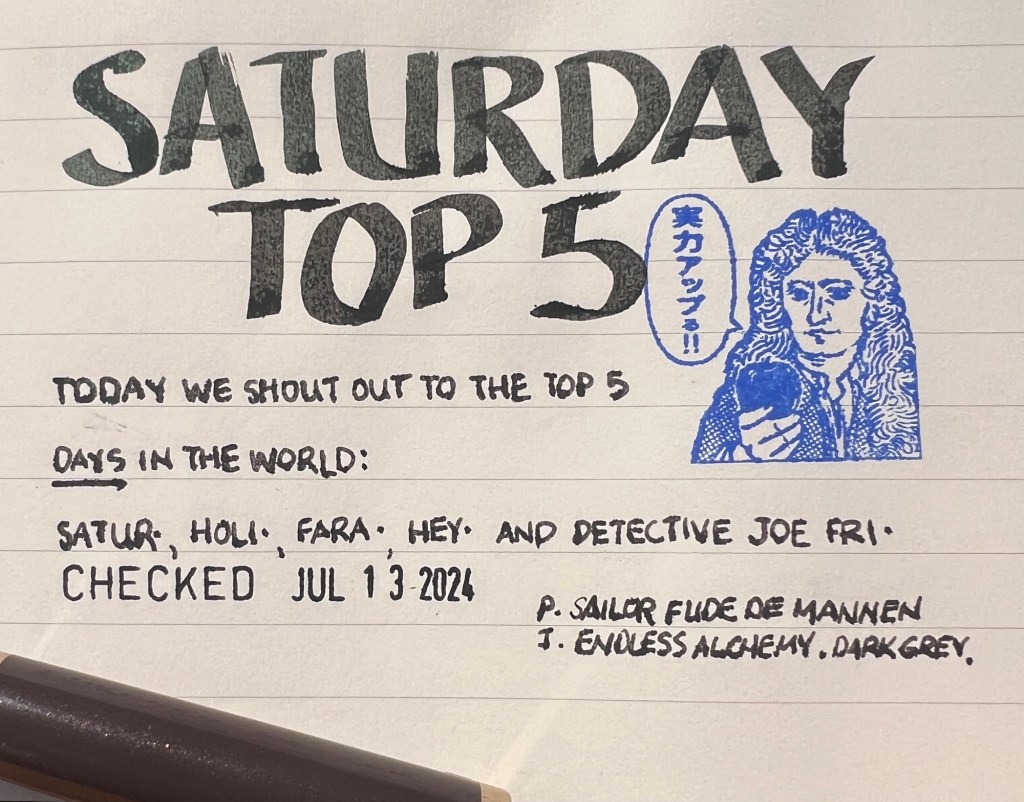 SATURDAY
TOP 5
実力アップる!!
TODAY WE SHOUT OUT TO THE TOP 5
DAYS IN THE WORLD:
SATUR·, HOLI·, FARA·, HEY· AND DETECTIVE JOE FRI·
CHECKED JUL 13 2024
P. SAILOR FUDE DE MANNEN
J. ENDLESS ALCHEMY. DARK GREY.